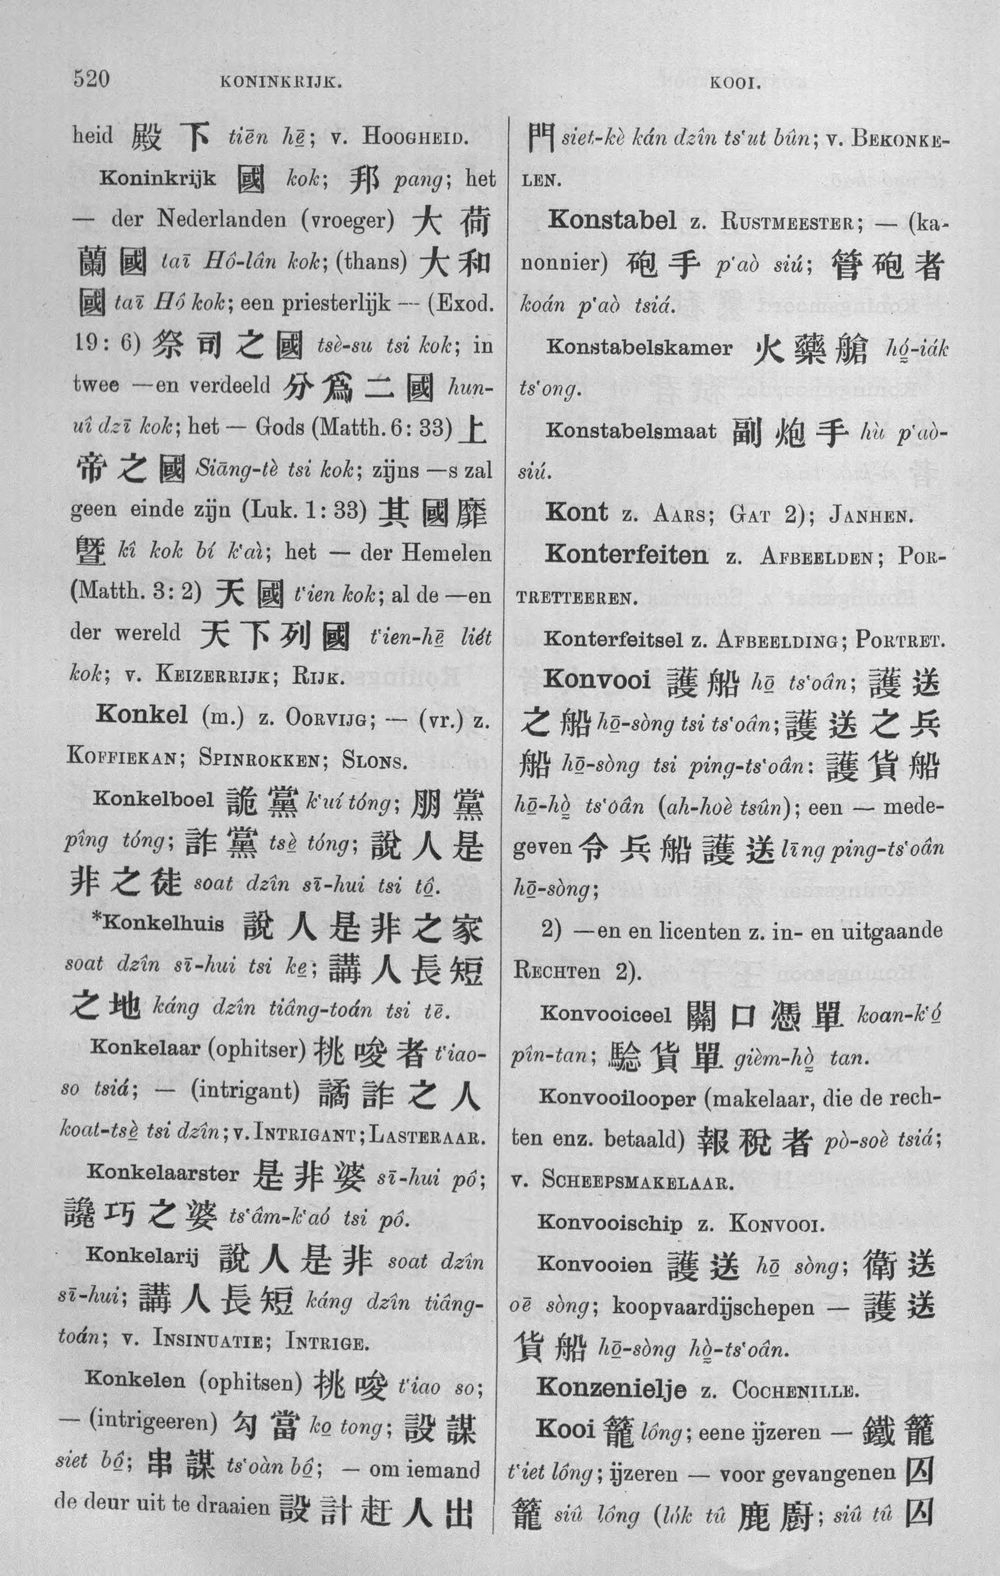 520 KONINKRIJK. KOOI.
heid 殿下 tiēn hē̱; v. HOOGHEID.
Koninkrijk 國 kok; 邦 pang; het
— der Nederlanden (vroeger) 大荷
蘭國 taī Hô-lân kok; (thans) 大和
國 taī Hô kok; een priesterlijk — (Exod.
19: 6) 祭司之國 tsè-su tsi kok; in
twee —en verdeeld 分爲二國 hun-
uî dzī kok; het — Gods (Matth. 6: 33) 上
帝之國 Siāng-tè tsi kok; zijns —s zal
geen einde zijn (Luk. 1: 33) 其國靡
曁 kî kok bí k'aì; het — der Hemelen
(Matth. 3: 2) 天國 t'ien kok; al de —en
der wereld 天下列國 t'ien-hē̱ liét
kok; v. KEIZERRIJK; RIJK.
Konkel (m.) z. OORVIJG; — (vr.) z.
KOFFIEKAN; SPINROKKEN; SLONS.
Konkelboel 詭黨 k'uí tóng; 朋黨
pîng tóng; 詐黨 tsè̱ tóng; 說人是
非之徒 soat dzîn sī-hui tsi tô̱.
*Konkelhuis 說人是非之家
soat dzîn sī-hui tsi ke̱; 講人長短
之地 káng dzîn tiâng-toán tsi tē.
Konkelaar (ophitser) 挑唆者 t'iao-
so tsiá; — (intrigant) 譎詐之人
koat-tsè̱ tsi dzîn; v. INTRIGANT; LASTERAAR.
Konkelaarster 是非婆 sī-hui pô;
讒巧之婆 ts'âm-k'aó tsi pô.
Konkelarij 說人是非 soat dzîn
sī-hui; 講人長短 káng dzîn tiâng-
toán; v. INSINUATIE; INTRIGE.
Konkelen (ophitsen) 挑唆 t'iao so;
— (intrigeeren) 勾當 ko̱ tong; 設謀
siet bô̱; 串謀 ts'oàn bô̱; — om iemand
de deur uit te draaien 設計赶人出
門 siet-kè kán dzîn ts'ut bûn; v. BEKONKE-
LEN.
Konstabel z. RUSTMEESTER; — (ka-
nonnier) 砲手 p'aò siú; 管砲者
koán p'aò tsiá.
Konstabelskamer 火藥艙 hó̤-iák
ts'ong.
Konstabelsmaat 副炮手 hù p'aò-
siú.
Kont z. AARS; GAT 2); JANHEN.
Konterfeiten z. AFBEELDEN; POR-
TRETTEEREN.
Konterfeitsel z. AFBEELDING; PORTRET.
Konvooi 護船 hō̱ ts'oân; 護送
之船 hō̱-sòng tsi ts'oân; 護送之兵
船 hō̱-sòng tsi ping-ts'oân: 護貨船
hō̱-hò̤ ts'oân (ah-hoè tsûn); een — mede-
geven 令兵船護送 līng ping-ts'oân
hō̱-sòng;
2) —en en licenten z. in- en uitgaande
RECHTen 2).
Konvooiceel 關口憑單 koan-k'ó̱
pîn-tan; 驗貨單 gièm-hò̤ tan.
Konvooilooper (makelaar, die de rech-
ten enz. betaald) 報稅者 pò-soè tsiá;
v. SCHEEPSMAKELAAR.
Konvooischip z. KONVOOI.
Konvooien 護送 hō̱ sòng; 衛送
oē sòng; koopvaardijschepen — 護送
貨船 hō̱-sòng hò̤-ts'oân.
Konzenielje z. COCHENILLE.
Kooi 籠 lông; eene ijzeren — 鐵籠
t'iet lông; ijzeren — voor gevangenen 囚
籠 siû lông (lók tû 鹿廚; siû tû 囚